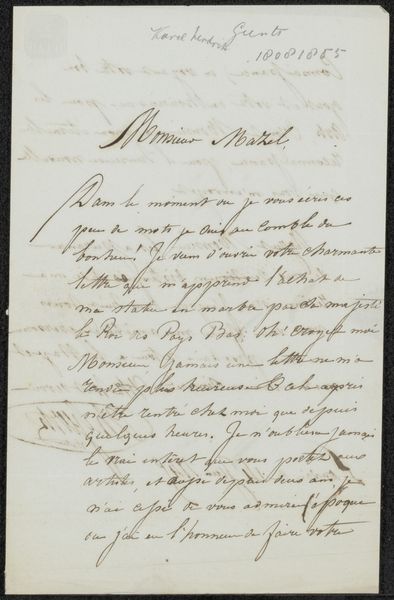 Karel Hendrik Geerts
1808 1855
Monsieur Mazel,
Dans le moment où je vous écris ces
peu de mots je suis au comble du
bonheur. Je viens d'ouvrir votre charmante
lettre qui m'apprend l'achat de
ma statue en marbre par sa majesté
le Roi des Pays Bas. Oh! croyez moi
Monsieur jamais une lettre ne m'a
rendu plus heureuse
rentré chez moi que depuis
quelques heures. Je n'oublierai jamais
le vrai intérêt que vous portez aux
artistes, et aussi depuis deux ans je
n'ai cessé de vous admirer l'époque
où j'ai eu l'honneur de faire votre